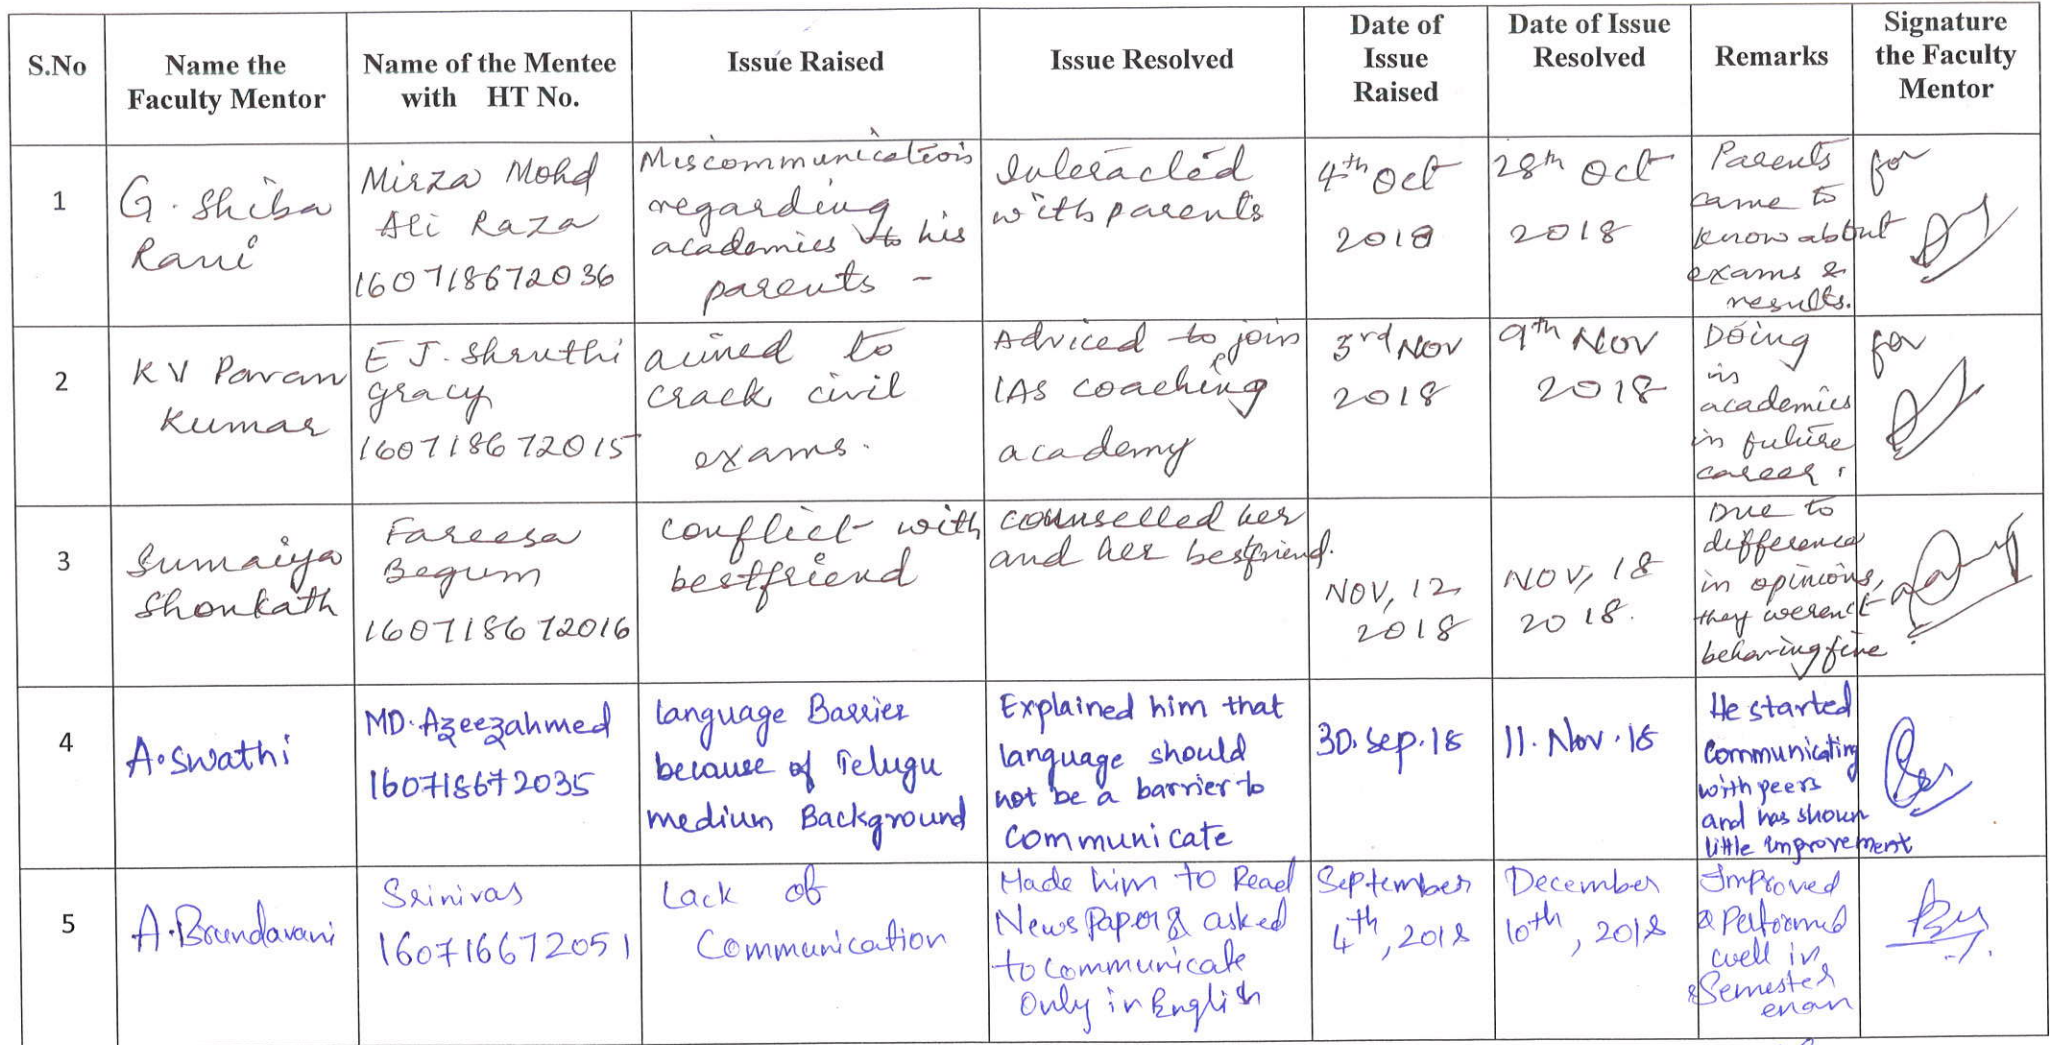 S.No
Name the
Faculty Mentor
Name of the Mentee
with HT No.
Issue Raised
Issue Resolved
Date of
Issue
Raised
Date of Issue
Resolved
Remarks
Signature
the Faculty
Mentor
1
G. Shiba
Rani
Mirza Mohd
Ali Raza
160718672036
Miscommunication
regarding
academics to his
parents -
Interacted
with parents
4th Oct
2018
28th Oct
2018
Parents
came to
know about
exams &
results.
for
2
K V Pavan
Kumar
E J. Shruthi
gracy
160718672015
aimed to
crack civil
exams.
Adviced to join
IAS coaching
academy
3rd Nov
2018
9th Nov
2018
Doing
in
academics
in future
career.
for
3
Sumaiya
Shoukath
Fareesa
Begum
160718672016
conflict with
bestfriend
counselled her
and her bestfriend.
NOV, 12,
2018
NOV, 18
2018.
Due to
difference
in opinions,
they weren't
behaving fine
4
A. Swathi
MD. Azeezahmed
160718672035
language Barrier
because of Telugu
medium Background
Explained him that
language should
not be a barrier to
communicate
30. Sep. 18
11. Nov. 18
He started
communicating
with peers
and has shown
little improvement
5
A. Brundavani
Srinivas
160716672051
Lack of
Communication
Made him to Read
News paper & asked
to communicate
Only in English
September
4th, 2018
December
10th, 2018
Improved
& Performed
well in
Semester
exam